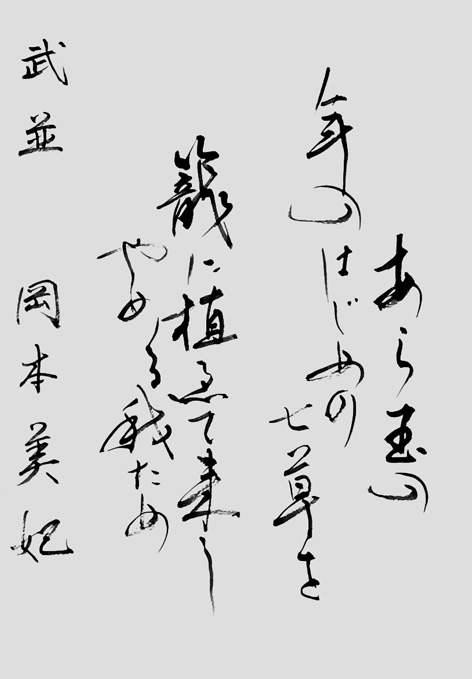 あら玉の
年のはじめの
七草を
籠に植ゑて来し
やめる我ため
武並 岡本美妃